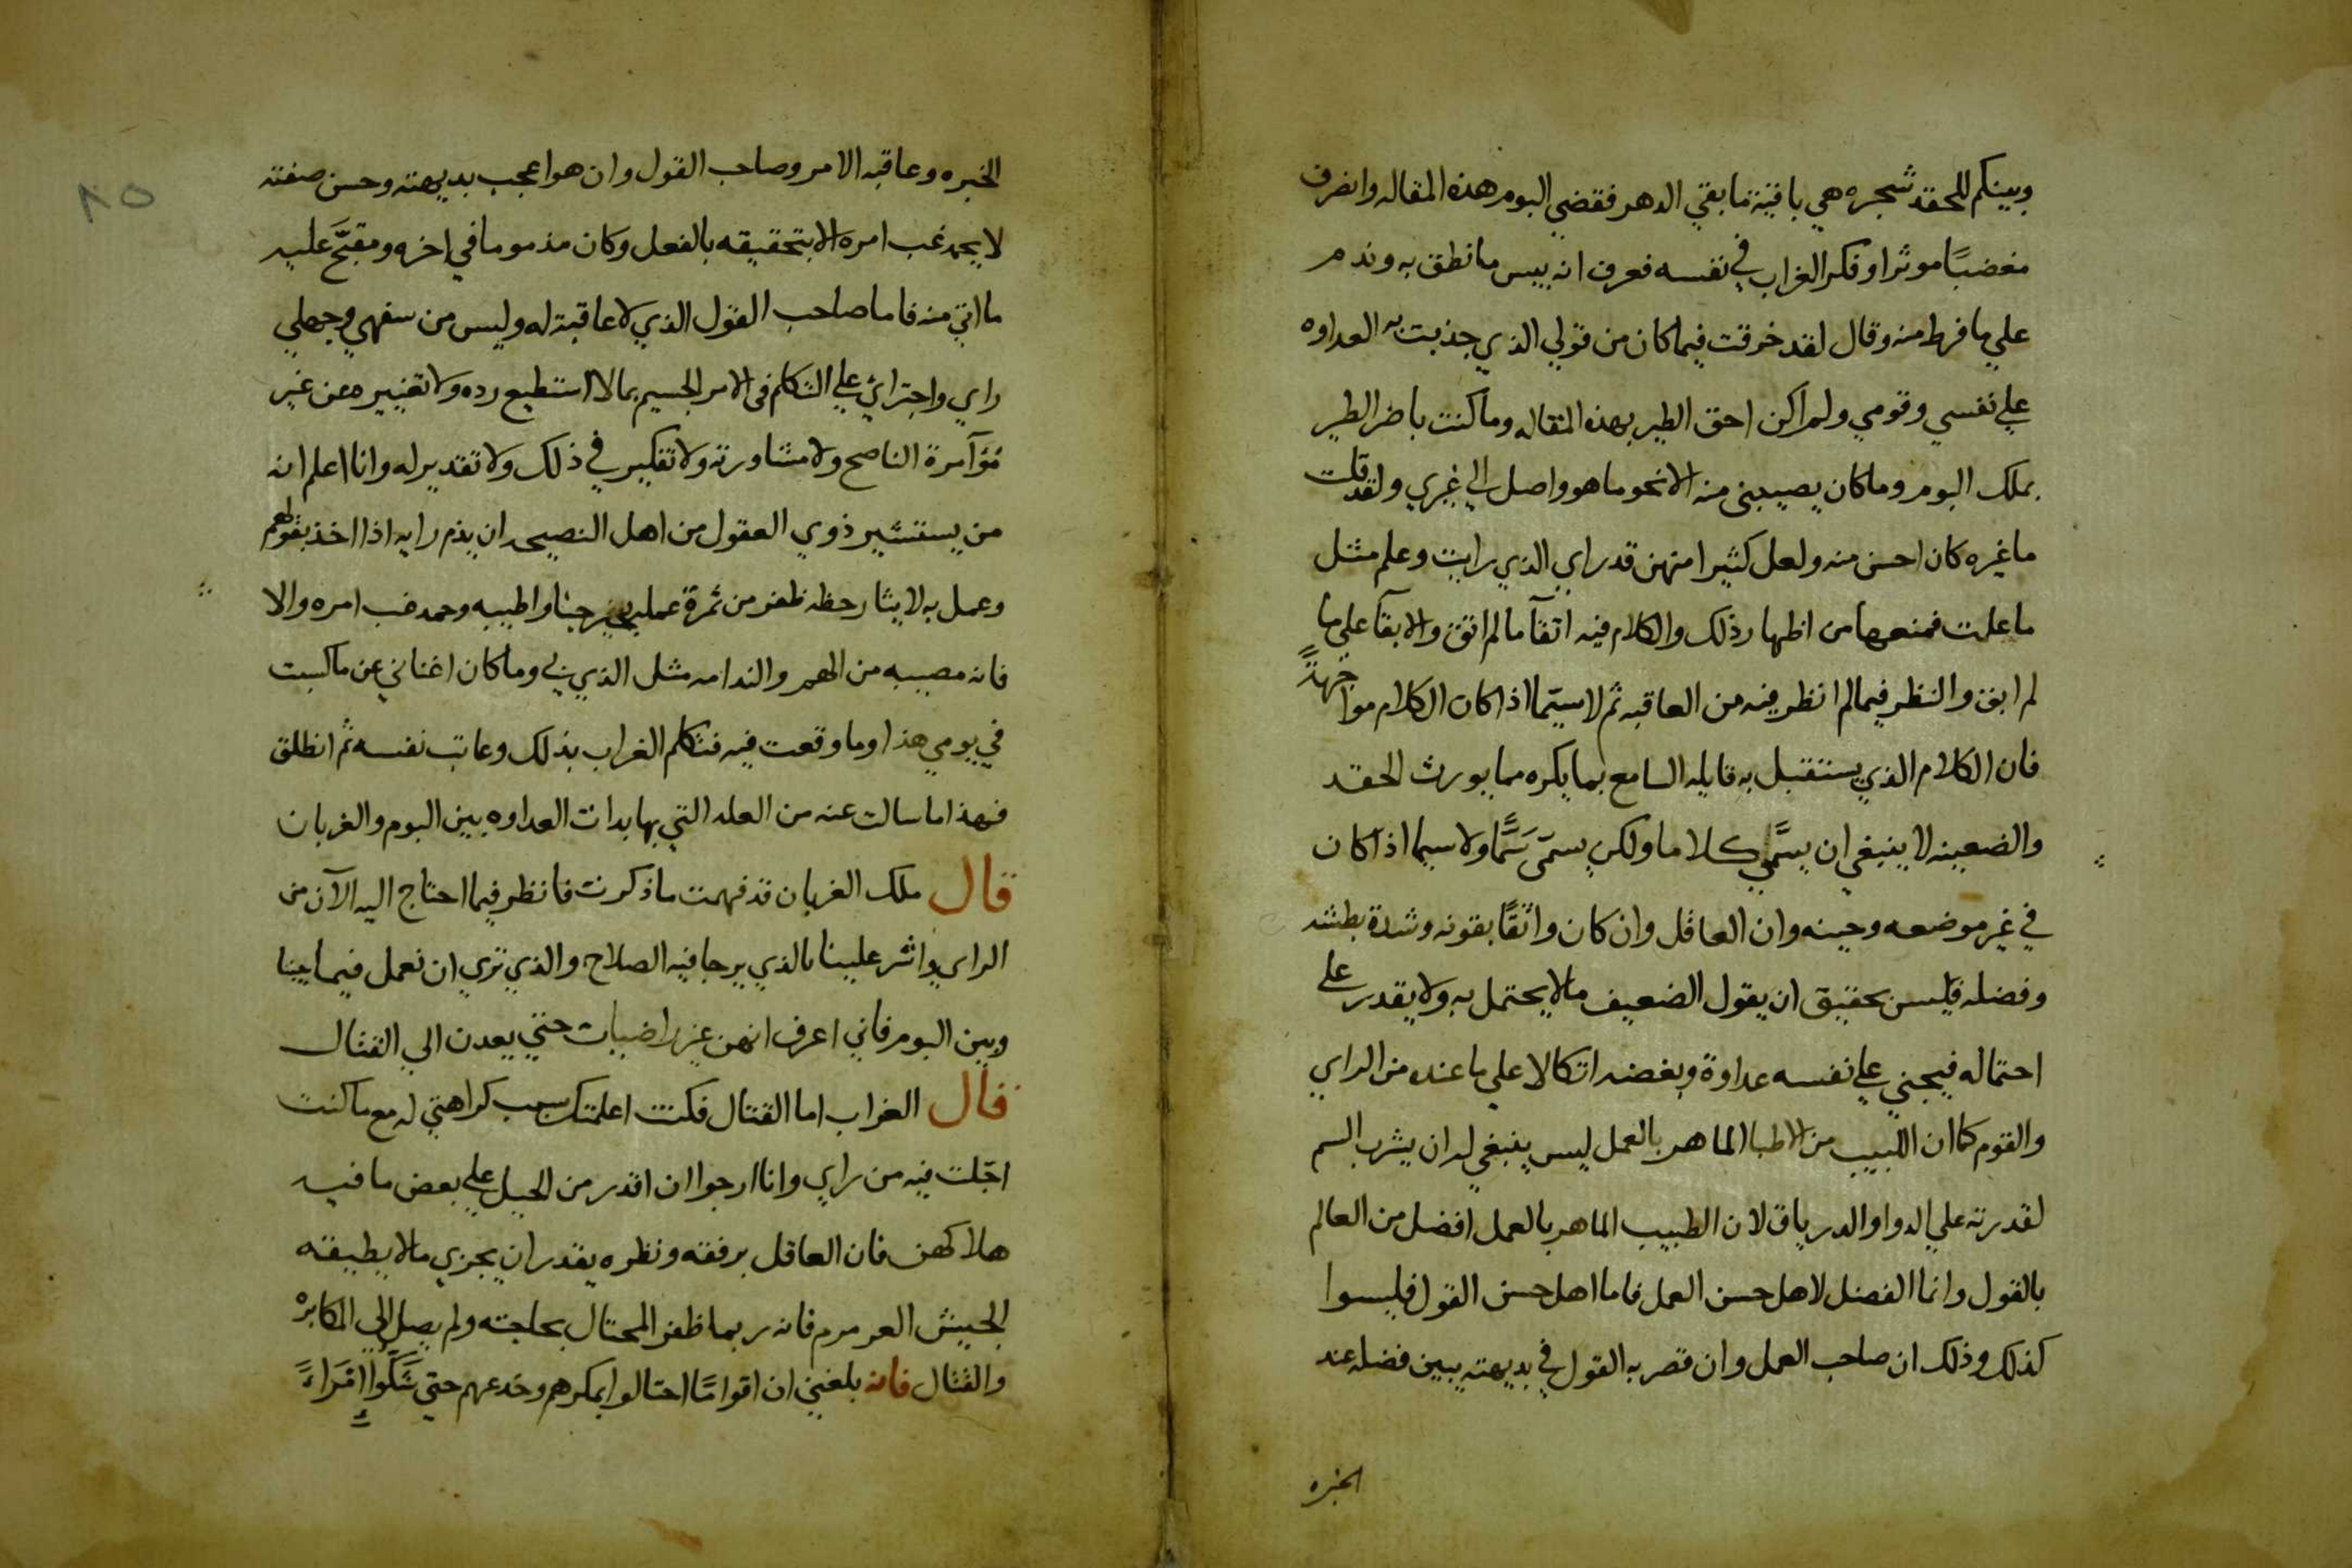 وبينكم للحقد شجره هي باقية ما بقي الدهر فقضي البوم هذه المقاله وانصرف
مغضبًا موثرا وفكر الغراب في نفسه فعرف انه بيس ما نطق به وندم
علي ما فرط منه وقال لقد خرقت فيما كان من قولي الذي جذبت به العداوه
علي نفسي وقومي ولم اكن احق الطير بهذه المقاله وما كنت باضر الطير
بملك البوم وما كان يصيبني منه الا نحو ما هو واصل الي غيري ولقد قلت
ما غيره كان احسن منه ولعل كثيرا منهن قد راي الذي رايت وعلم مثل
ما علمت فمنعها من اظهار ذلك والكلام فيه اتقآ ما لم اتق والابقآ علي ما
لم ابق والنظر فيما لم انظر فيه من العاقبه ثم لا سيّما اذا كان الكلام مواجهةً
فان الكلام الذي يستقبل به قايله السامع بما يكره مما يورث الحقد
والضعينه لا ينبغي ان يسمَّي كلاما ولكن يسمّى سَمًّا ولا سيما اذا كان
في غير موضعه وحينه وان العاقل وان كان واثقًا بقوته وشدة بطشه
وفضله فليس بحقيق ان يقول الضعيف ما لا يحتمل به ولا يقدر علي
احتماله فيجني علي نفسه عداوة وبغضه اتكالا علي ما عنده من الراي
والقوم كما ان اللبيب من الاطبا الماهر بالعمل ليس ينبغي له ان يشرب السم
لقدرته علي الدوا والدرياق لان الطبيب الماهر بالعمل افضل من العالم
بالقول وانما الفضل لاهل حسن العمل فاما اهل حسن القول فليسوا
كذلك وذلك ان صاحب العمل وان قصر به القول في بديهته يبين فضله عند
الخبره
٨٥
الخبره وعاقبه الامر وصاحب القول وان هو اعجب بديهته وحسن صفته
لا يحمد غب امره الا بتحقيقه بالفعل وكان مذموما في اخره ومقبَّح عليه
ما اتي منه فاما صاحب القول الذي لا عاقبة له وليس من سفهي وجهلي
راي واجترائي علي التكلم في الامر الجسيم بما لا استطيع رده ولا تغييره عن غير
مُؤآمرة الناصح ولا مشاورته ولا تفكير في ذلك ولا تقدير له وانا اعلم انه
من يستشير ذوي العقول من اهل النصيحه ان يذم رايه اذا اخذ بقولهم
وعمل به لايثار حظه ظفر من ثمرة عمله واطيبه وحمد غب امره والا
فانه مصيبه من الهم والندامه مثل الذي بي وما كان اغناني عن ما كسبت
في يومي هذا وما وقعت فيه فتكلم الغراب بذلك وعاتب نفسه ثم انطلق
فهذا ما سالت عنه من العله التي بها بدات العداوه بين البوم والغربان
قال ملك الغربان قد فهمت ما ذكرت فانظر فيما احتاج اليه الآن من
الراي واشر علينا بالذي يرجا فيه الصلاح والذي تري ان نعمل فيما بيننا
وبين البوم فاني اعرف انهن غير راضيات حتي يعدن الي القتال
قال الغراب اما القتال فكنت اعلمتك سبب كراهتي له مع ما كنت
اجّلت فيه من راي وانا ارجوا ان اقدر من الحيل علي بعض ما فيه
هلاكهن فان العاقل برفقه ونظره يقدر ان يجزي ما لا يطيقه
الجيش العرمرم فانه ربما ظفر المحتال بحاجته ولم يصل الي المكابرْ
والقتال فانه بلغني ان اقوامًا احتالوا بمكرهم وخدعهم حتي شَكَّوا امْرَاءً